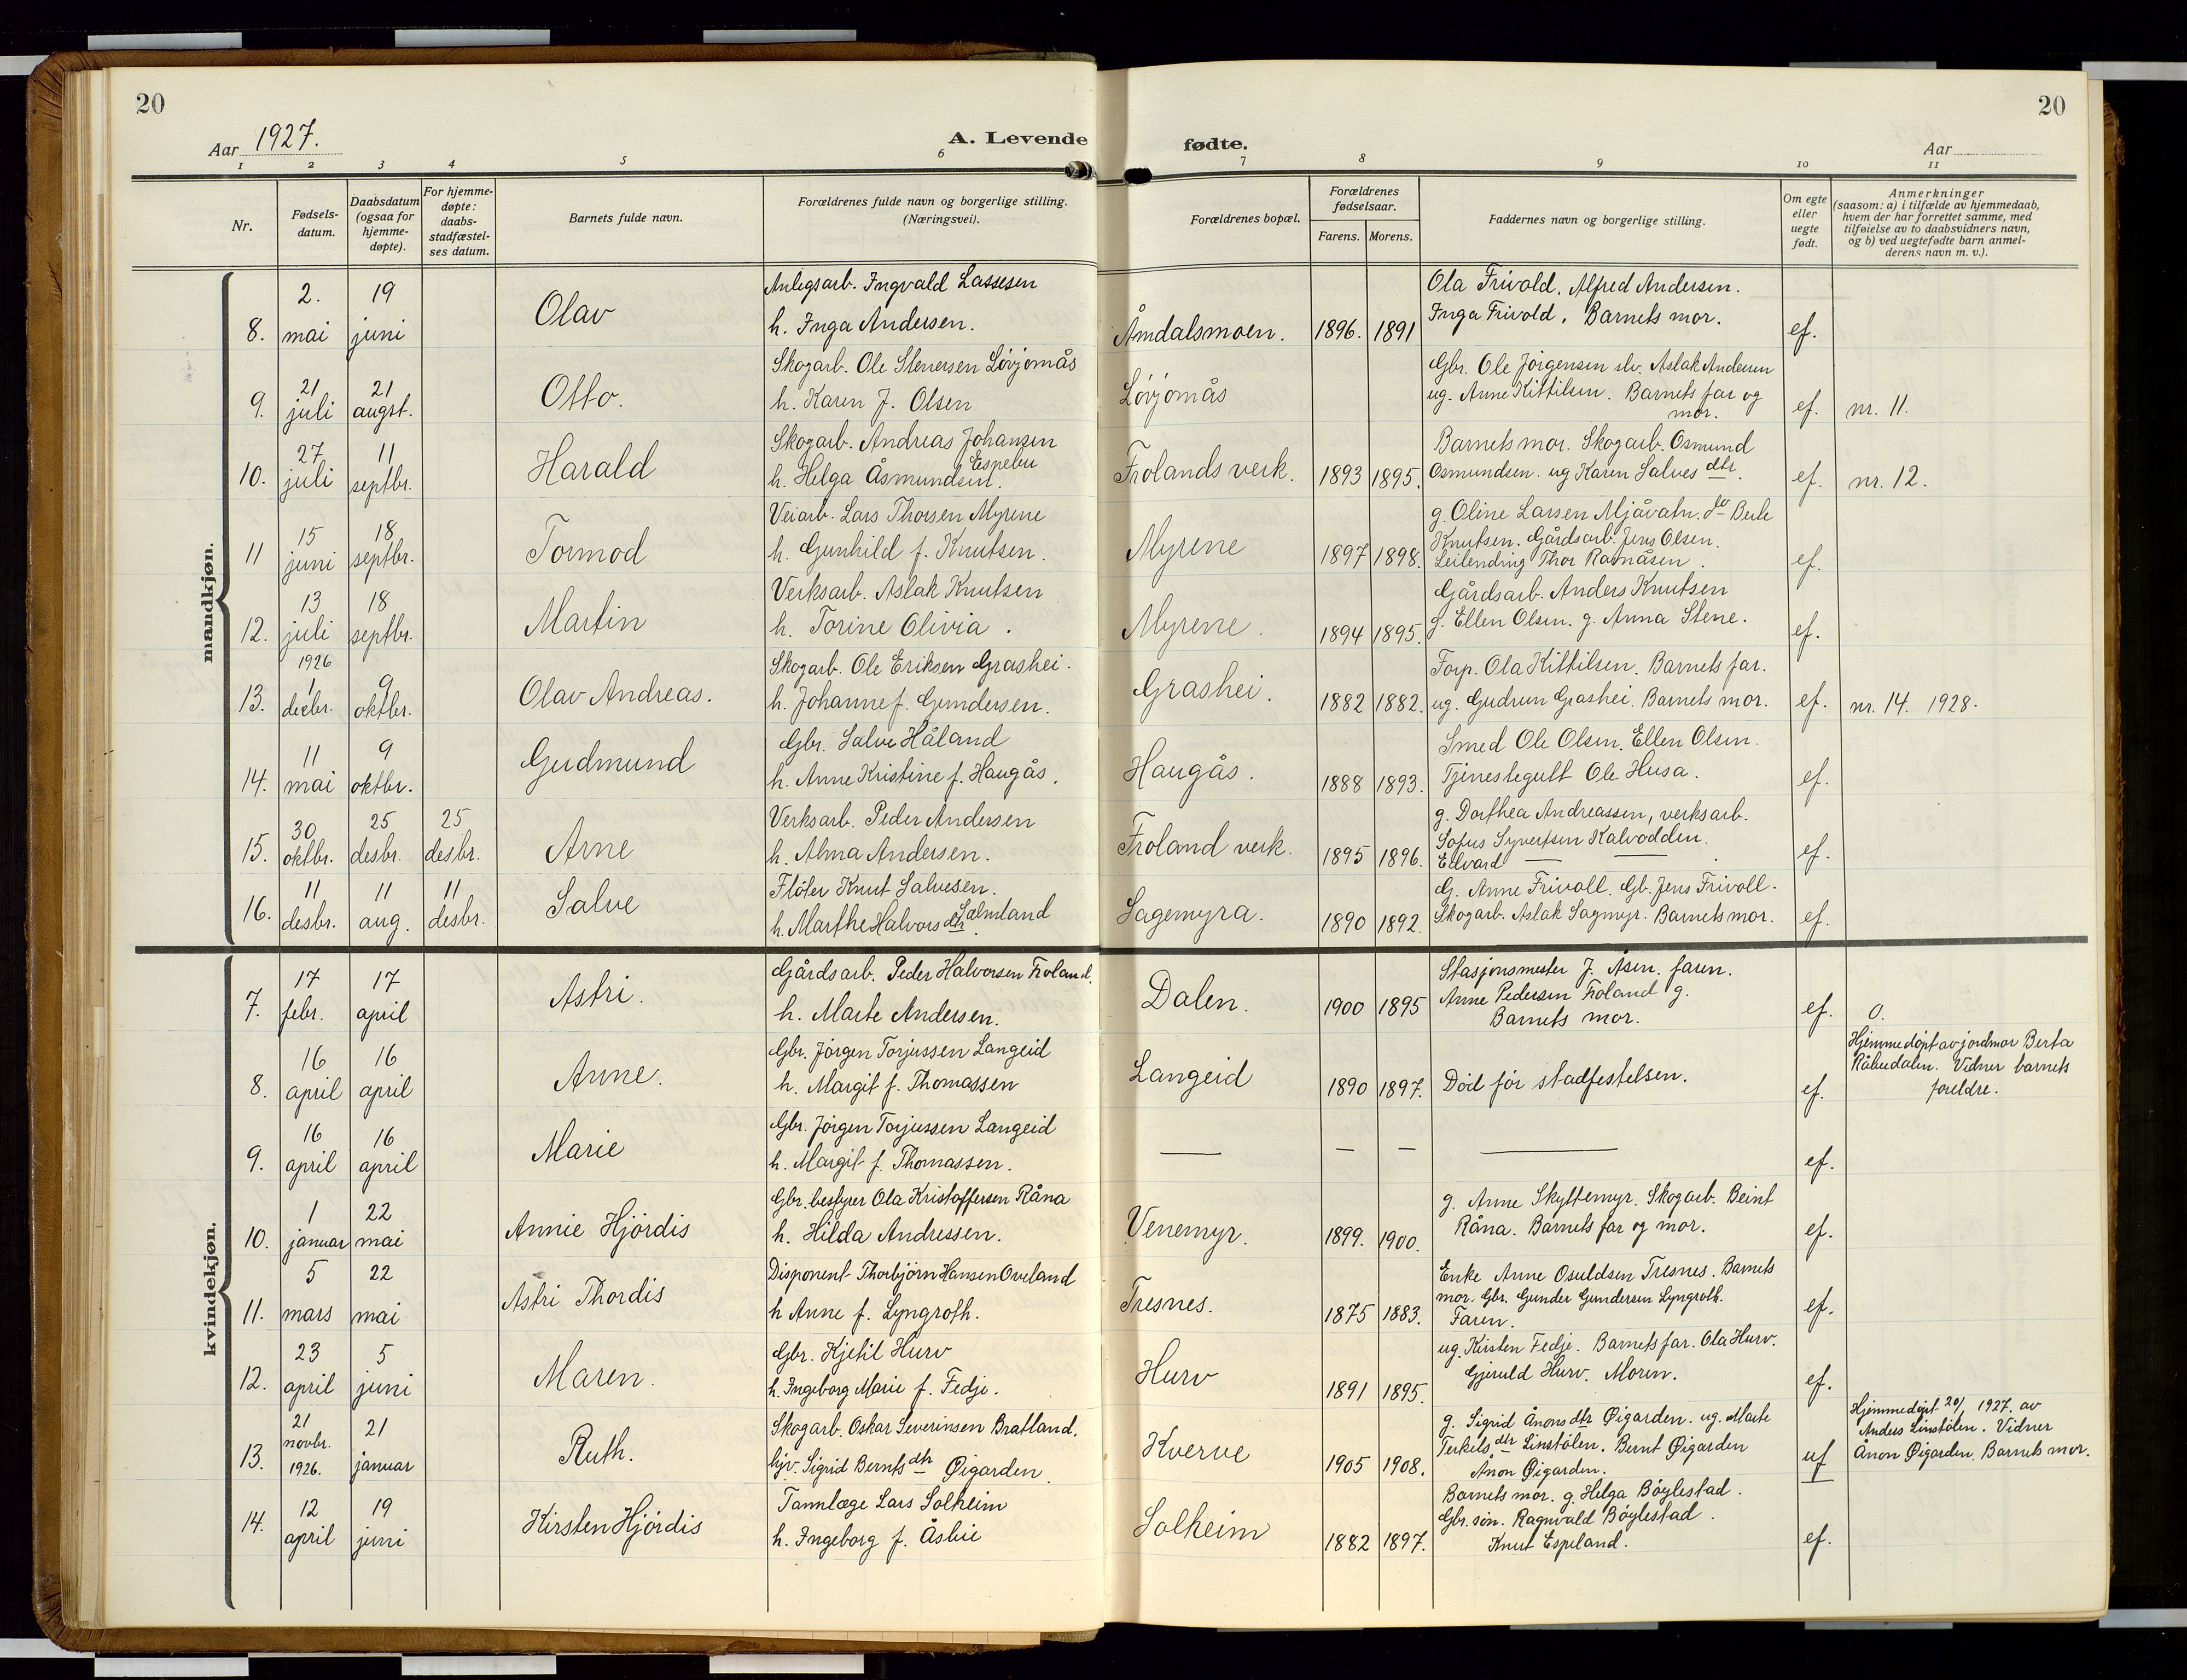 20
20
Aar 1927.
A. Levende
fødte.
Aar
1 2 3 4 5 6 7 8 9 10 11
Nr.
Fødsels-
datum.
Daabsdatum
(ogsaa for
hjemme-
døpte).
For hjemme-
døpte:
daabs-
stadfæstel-
ses datum.
Barnets fulde navn.
Forældrenes fulde navn og borgerlige stilling.
(Næringsvei).
Forældrenes bopæl.
Forældrenes
fødselsaar.
Farens. Morens.
Faddernes navn og borgerlige stilling.
Om egte
eller
uegte
født.
Anmerkninger
(saasom: a) i tilfælde av hjemmedaab,
hvem der har forrettet samme, med
tilføielse av to daabsvidners navn,
og b) ved uegtefødte barn anmel-
derens navn m. v.).
mandkjøn.
8. 2. mai 19 juni Olav
Anlegsarb. Ingvald Lassesen
h. Inga Andersen.
Åmdalsmoen. 1896. 1891
Ola Frivold. Alfred Andersen.
Inga Frivold. Barnets mor.
ef.
9. 21 juli 21 augst. Otto.
Skogarb. Ole Stenersen Løvjomås
h. Karen J. Olsen
Løvjomås
Gbr. Ole Jörgensen slv. Aslak Andersen
ug. Anne Kittilsen. Barnets far og
mor.
ef. nr. 11.
10. 27 juli 11 septbr. Harald
Skogarb. Andreas Johansen
Espebu
h. Helga Åsmundsen.
Frolands verk. 1893 1895.
Barnets mor. Skogarb. Osmund
Osmundsen. ug Karen Salves dtr.
ef. nr. 12.
11 15 juni 18 septbr. Tormod
Veiarb. Lars Thorsen Myrene
h. Gunhild f. Knutsen.
Myrene 1897 1898.
g. Oline Larsen Mjåvatn. do Berte
Knutsen. Gårdsarb. Jens Olsen.
Leilending Thor Ramåsen.
ef.
12. 13 juli 18 septbr. Martin
Verksarb. Aslak Knutsen
h. Torine Olivia.
Myrene. 1894 1895.
Gårdsarb. Anders Knutsen
g. Ellen Olsen. g. Anna Stene.
ef.
13. 1926 1 decbr. 9 oktbr. Olav Andreas.
Skogarb. Ole Eriksen Grashei.
h. Johanne f. Gundersen.
Grashei. 1882 1882.
Torp. Ola Kittilsen. Barnets far.
ug. Gudrun Grashei. Barnets mor.
ef. nr. 14. 1928.
14. 11 mai 9 oktbr. Gudmund
Gbr. Salve Håland
h. Anne Kristine f. Haugås.
Haugås. 1888 1893.
Smed Ole Olsen. Ellen Olsen.
Tjenestegutt Ole Husa.
ef.
15. 30 oktbr. 25 desbr. 25 desbr. Arne
Verksarb. Peder Andersen
h. Alma Andersen.
Froland verk. 1895 1896.
g. Dorthea Andreassen, verksarb.
Sofus Syvertsen Kalvodden.
Edvard — —
ef.
16. 11 desbr. 11 aug. 11 desbr. Salve
Fløter Knut Salvesen.
h. Marthe Halvorsdtr Salmeland
Sagemyra. 1890 1892.
G. Anne Frivoll. Gb. Jens Frivoll.
Skogarb. Aslak Sagmyr. Barnets mor.
ef.
kvindekjøn.
7. 17 febr. 17 april Astri.
Gårdsarb. Peder Halvorsen Froland.
h. Marte Andersen.
Dalen. 1900 1895
Stasjonsmester J. Åsen. faren.
Anne Pedersen Froland g.
Barnets mor.
ef. 0.
8. 16 april 16 april Anne.
Gbr. Jörgen Torjussen Langeid
h. Margit f. Thomassen
Langeid 1890 1897.
Död før stadfestelsen.
ef.
Hjemmedöpt av jordmor Berta
Råbudalen. Vidner barnets
foreldre.
9. 16 april 16 april Marie
Gbr. Jörgen Torjussen Langeid
h. Margit f. Thomassen.
— — — —
ef.
10. 1 januar 22 mai Annie Hjördis
Gbr. bestyrer Ola Kristoffersen Råna
h. Hilda Andressen.
Venemyr. 1899. 1900.
g. Anne Skyttemyr. Skogarb. Beint
Råna. Barnets far og mor.
ef.
11. 5 mars 22 mai Astri Thordis
Disponent Thorbjörn Hansen Oveland
h Anne f. Lyngroth.
Tresnes. 1875 1883.
Enke Anne Osuldsen Tresnes. Barnets
mor. Gbr. Gunder Gundersen Lyngroth.
Faren.
ef.
12. 23 april 5 juni Maren.
Gbr. Kjetil Hurv
h. Ingeborg Marie f. Fedje.
Hurv 1891 1895.
ug. Kirsten Fedje. Barnets far. Ola Hurv.
Gjeruld Hurv. Moren.
ef.
13. 21 novbr. 1926. 21 januar Ruth.
Skogarb. Oskar Severinsen Bratland.
Sigrid Bernts dtr Øigarden.
Kverve 1905 1908.
g. Sigrid Ånons dtr Øigarden. ug. Marte
Terkels dtr Linstølen. Bernt Øigarden
Ånon Øigarden.
uf
Hjemmedöpt 20/1 1927. av
Anders Linstölen. Vidner
Ånon Øigarden. Barnets mor.
14. 12 april 19 juni Kirsten Hjördis
Tannlæge Lars Solheim
h. Ingeborg f. Åsbie
Solheim 1882 1897.
Barnets mor. g. Helga Böylestad.
Gbr. sön. Ragnvald Böylestad.
Knut Espeland.
ef.